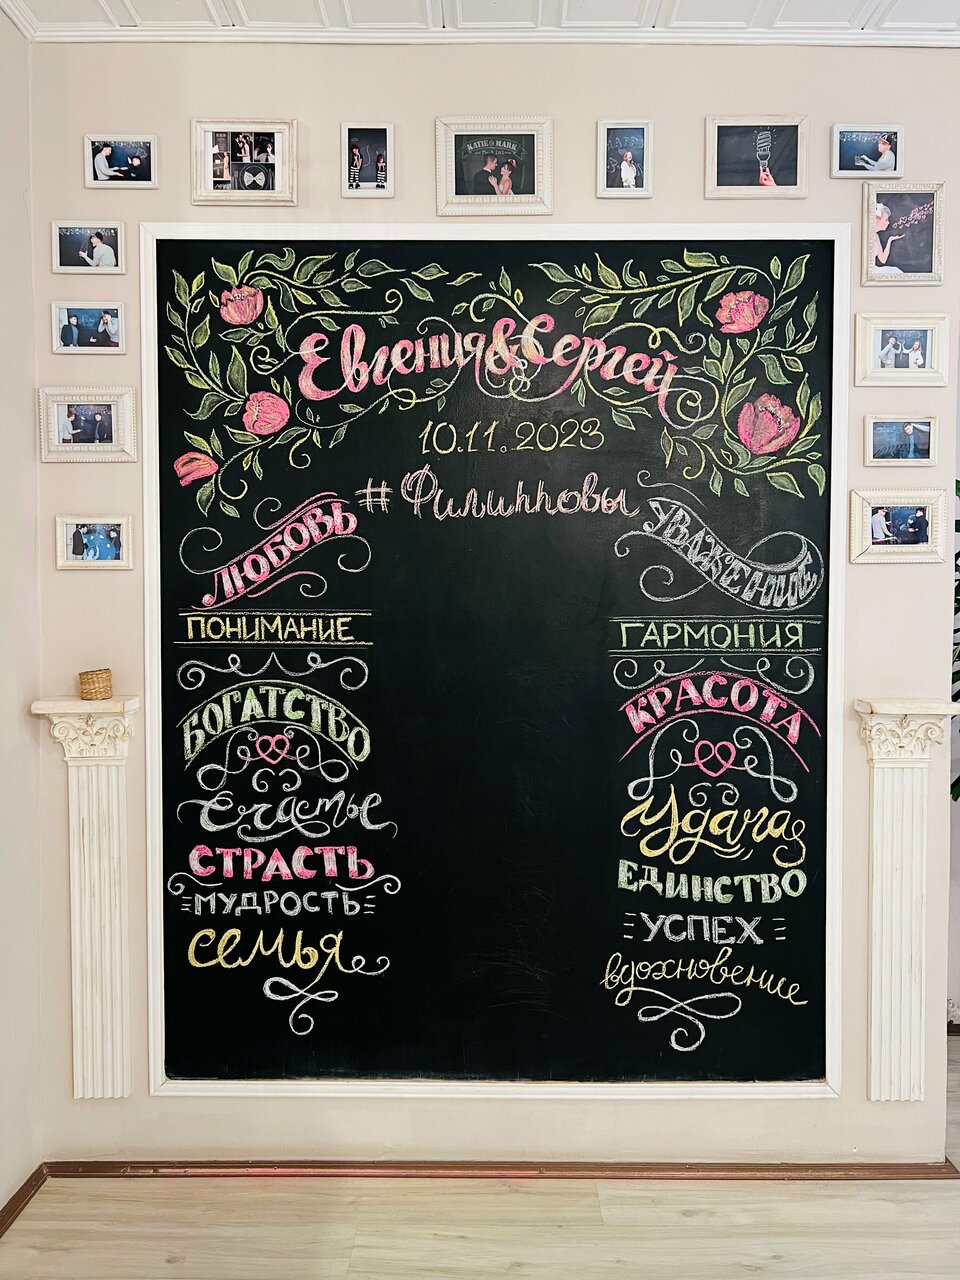 KATIE & MARK
Евгения & Сергей
10.11.2023
#Филипповы
ЛЮБОВЬ
ПОНИМАНИЕ
БОГАТСТВО
Счастье
СТРАСТЬ
МУДРОСТЬ
семья
УВАЖЕНИЕ
ГАРМОНИЯ
КРАСОТА
Удача
ЕДИНСТВО
УСПЕХ
вдохновение